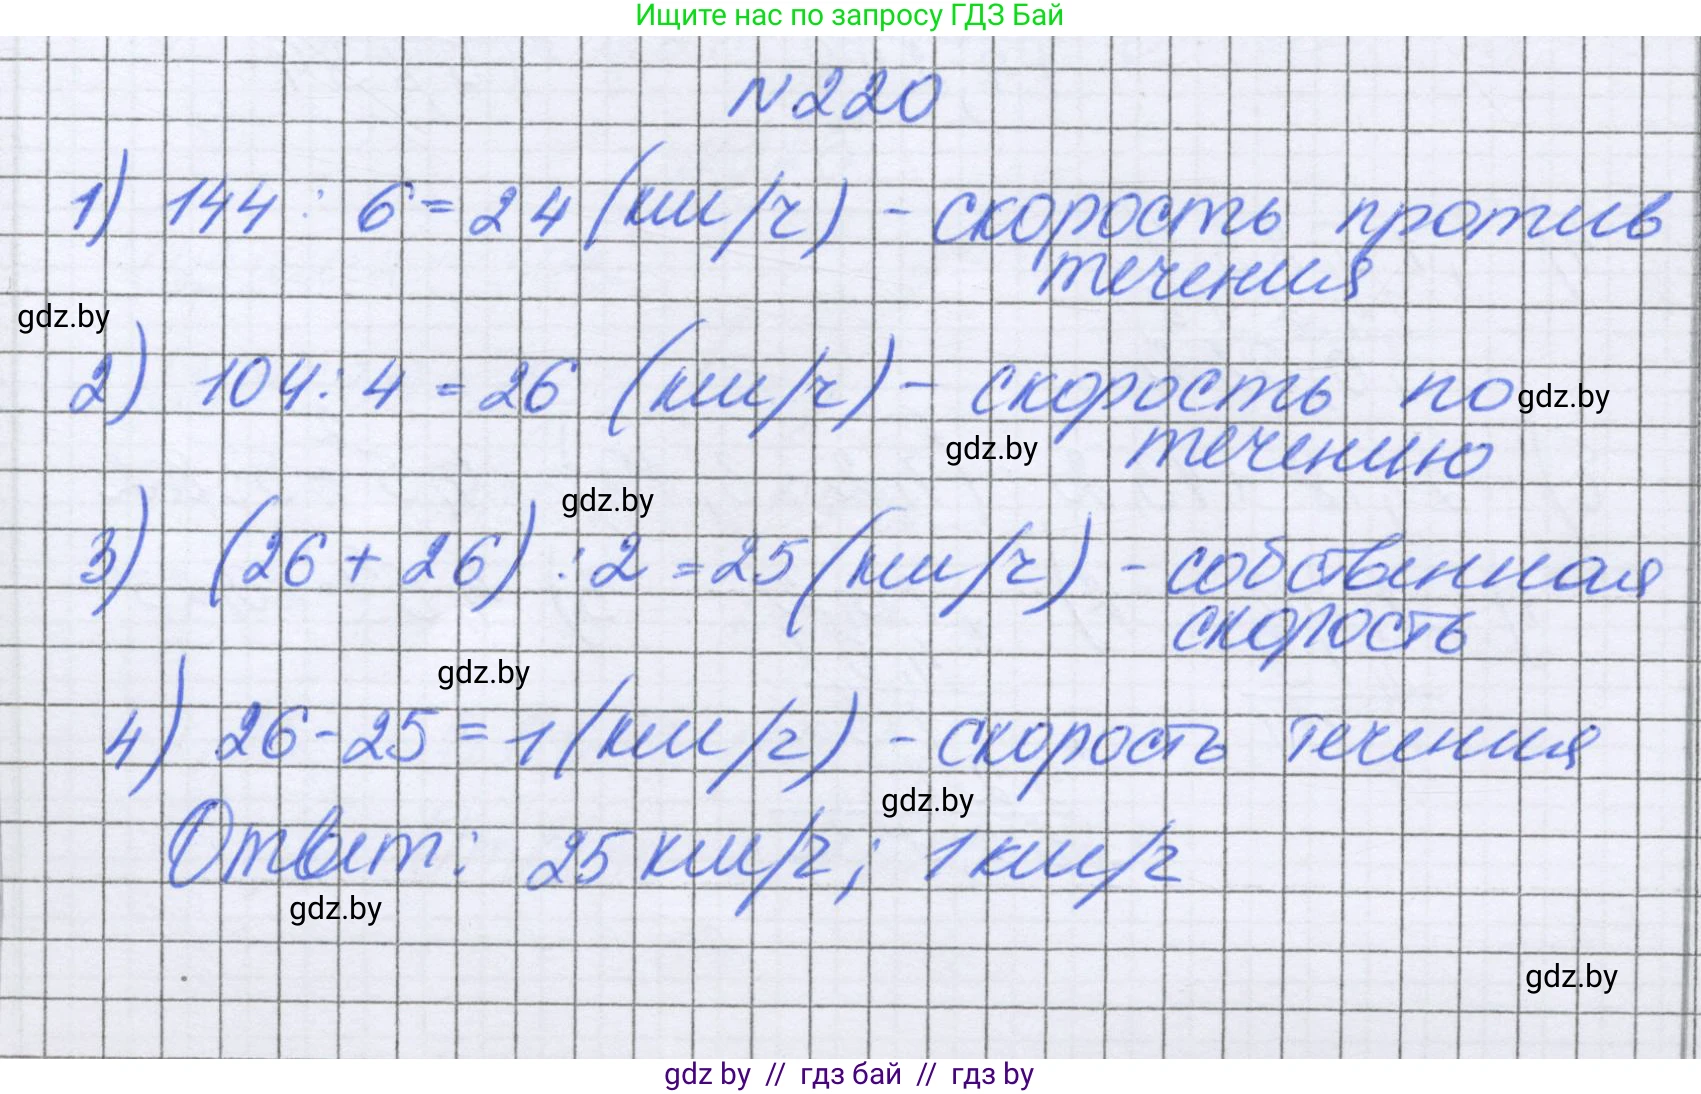 Ищите нас по запросу ГДЗ Бай
N220
1) 144 : 6 = 24 (км/ч) - скорость против
течения
gdz.by
2) 104 : 4 = 26 (км/ч) - скорость по
gdz.by
gdz.by
течению
gdz.by
3) (26 + 26) : 2 = 25 (км/ч) - собственная
скорость
gdz.by
4) 26 - 25 = 1 (км/ч) - скорость течения
gdz.by
Ответ: 25 км/ч; 1 км/ч
gdz.by
gdz.by
gdz by // гдз бай // гдз by